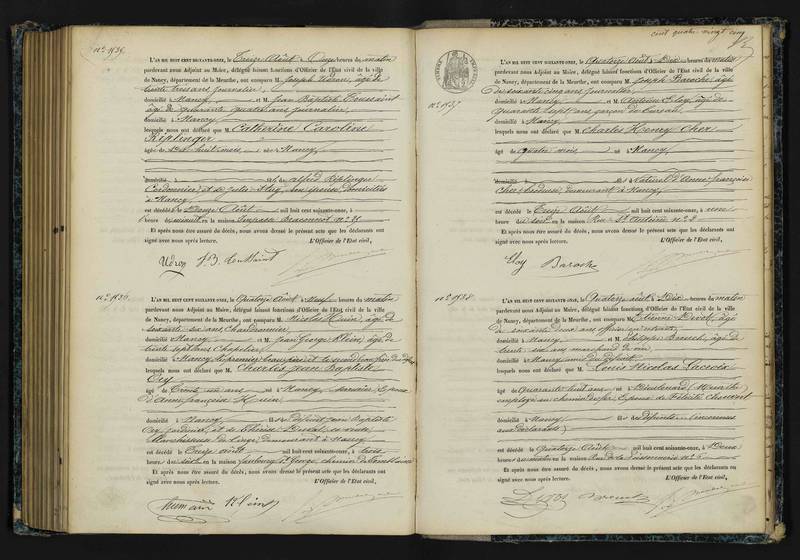 cent quatre vingt cinq
n° 1935
L'AN MIL HUIT CENT SOIXANTE-ONZE, le Treize Août à Onze heures du matin
pardevant nous Adjoint au Maire, délégué faisant fonctions d'Officier de l'État civil de la ville
de Nancy, département de la Meurthe, ont comparu M. Joseph Uéron, âgé de
trente trois ans journalier
domicilié à Nancy et M. Jean Baptiste Toussaint
âgé de quarante quatre ans journalier
domicilié à Nancy
lesquels nous ont déclaré que M. Catherine Caroline
Riplinger
âgé de dix huit mois né à Nancy
domicilié à fils de Alfred Riplinger
Cordonnier et de Julie son épouse domiciliés
à Nancy
est décédé le Douze Août mil huit cent soixante-onze, à
heure du en la maison Impasse Braconnot n°
Et après nous être assuré du décès, nous avons dressé le présent acte que les déclarants ont
signé avec nous après lecture. L'Officier de l'État civil,
J.B. Toussaint
n° 1936
L'AN MIL HUIT CENT SOIXANTE-ONZE, le Quatorze Août à Neuf heures du matin
pardevant nous Adjoint au Maire, délégué faisant fonctions d'Officier de l'État civil de la ville
de Nancy, département de la Meurthe, ont comparu M. Nicolas Huin, âgé de
soixante six ans, Charbonnier
domicilié à Nancy et M. Jean George Klein, âgé de
trente sept ans chapelier
domicilié à Nancy le premier beau père et le second
lesquels nous ont déclaré que M. Charles Jean Baptiste
âgé de Trente un ans né à Nancy Epoux
d'Anne françoise Huin
domicilié à Nancy fils de défunt Jean Baptiste
jardinier et de
Blanchisseuse de linge, demeurant à Nancy
est décédé le Treize août mil huit cent soixante-onze, à trois
heure du soir en la maison faubourg St George, chemin de Tomblaine
Et après nous être assuré du décès, nous avons dressé le présent acte que les déclarants ont
signé avec nous après lecture. L'Officier de l'État civil,
Klein
n° 1937
L'AN MIL HUIT CENT SOIXANTE-ONZE, le Quatorze Août à Dix heures du matin
pardevant nous Adjoint au Maire, délégué faisant fonctions d'Officier de l'État civil de la ville
de Nancy, département de la Meurthe, ont comparu M. Joseph Baroche, âgé
de soixante cinq ans journalier
domicilié à Nancy et M. Eloy, âgé de
quarante sept ans garçon de bureau
domicilié à Nancy
lesquels nous ont déclaré que M. Charles Henry Cher
âgé de quatre mois né à Nancy
domicilié à fils naturel d'Anne françoise
Cher, brodeuse, demeurant à Nancy
est décédé le Treize Août mil huit cent soixante-onze, à une
heure du soir en la maison Rue St Antoine n° 2
Et après nous être assuré du décès, nous avons dressé le présent acte que les déclarants ont
signé avec nous après lecture. L'Officier de l'État civil,
Eloy Baroche
n° 1938
L'AN MIL HUIT CENT SOIXANTE-ONZE, le Quatorze Août à Dix heures du matin
pardevant nous Adjoint au Maire, délégué faisant fonctions d'Officier de l'État civil de la ville
de Nancy, département de la Meurthe, ont comparu M. Etienne âgé
de soixante deux ans officier en retraite
domicilié à Nancy et M. Philippe âgé de
trente six ans marchand de vin
domicilié à Nancy amis du défunt
lesquels nous ont déclaré que M. Louis Nicolas Lacroix
âgé de Quarante huit ans né à Dieulouard (Meurthe)
employé au chemin de fer Epoux de Félicité
domicilié à Nancy fils de défunts (inconnus
aux déclarants)
est décédé le Quatorze Août mil huit cent soixante-onze, à Deux
heure du matin en la maison Rue de la
Et après nous être assuré du décès, nous avons dressé le présent acte que les déclarants ont
signé avec nous après lecture. L'Officier de l'État civil,